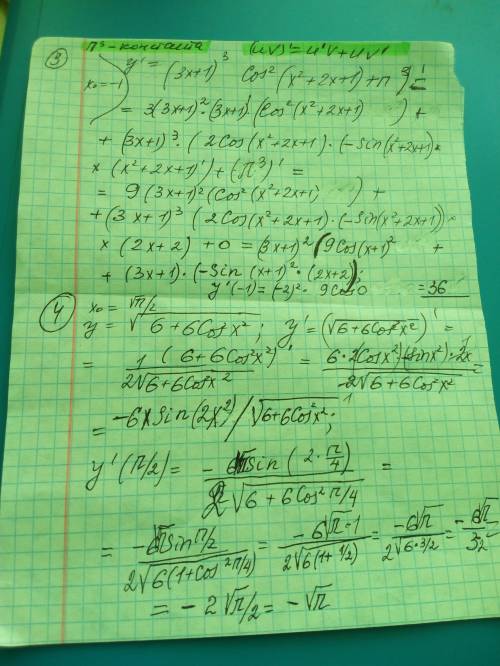 π³-константа (UV)'=U'V+UV'
③ x₀=-1 y' = ((3x+1)³ cos²(x²+2x+1)+π³)' =
= 3(3x+1)²·(3x+1)'(Cos²(x²+2x+1) ) +
+ (3x+1)³·(2Cos(x²+2x+1)·(-Sin(x²+2x+1)×
× (x²+2x+1)')+(π³)' =
= 9(3x+1)²(Cos²(x²+2x+1) ) +
+(3x+1)³(2Cos(x²+2x+1)·(-Sin(x²+2x+1))×
× (2x+2) +0 = (3x+1)²(9Cos(x+1)² +
+ (3x+1)·(-Sin(x+1)²·(2x+2));
y'(-1)=(-2)²·9Cos0 =36
④ x₀ = √π/2
y = √6+6Cos²x² ; y'=(√6+6Cos²x²)' =
= 1(6+6Cos²x²)' / 2√6+6Cos²x² = 6·2Cosx²·(-Sinx²)·2x / 2√6+6Cos²x² =
= -6xSin(2x²)/√6+6Cos²x² ;
y'(π/2) = -6√πSin(2·π/4) / 2√6+6Cos²π/4 =
= -6√πSinπ/2 / 2√6(1+Cos²π/4) = -6√π·1 / 2√6(1+1/2) = -6√π / 2√6·3/2 = -6√π / 3·2 =
= -2√π/2 = -√π